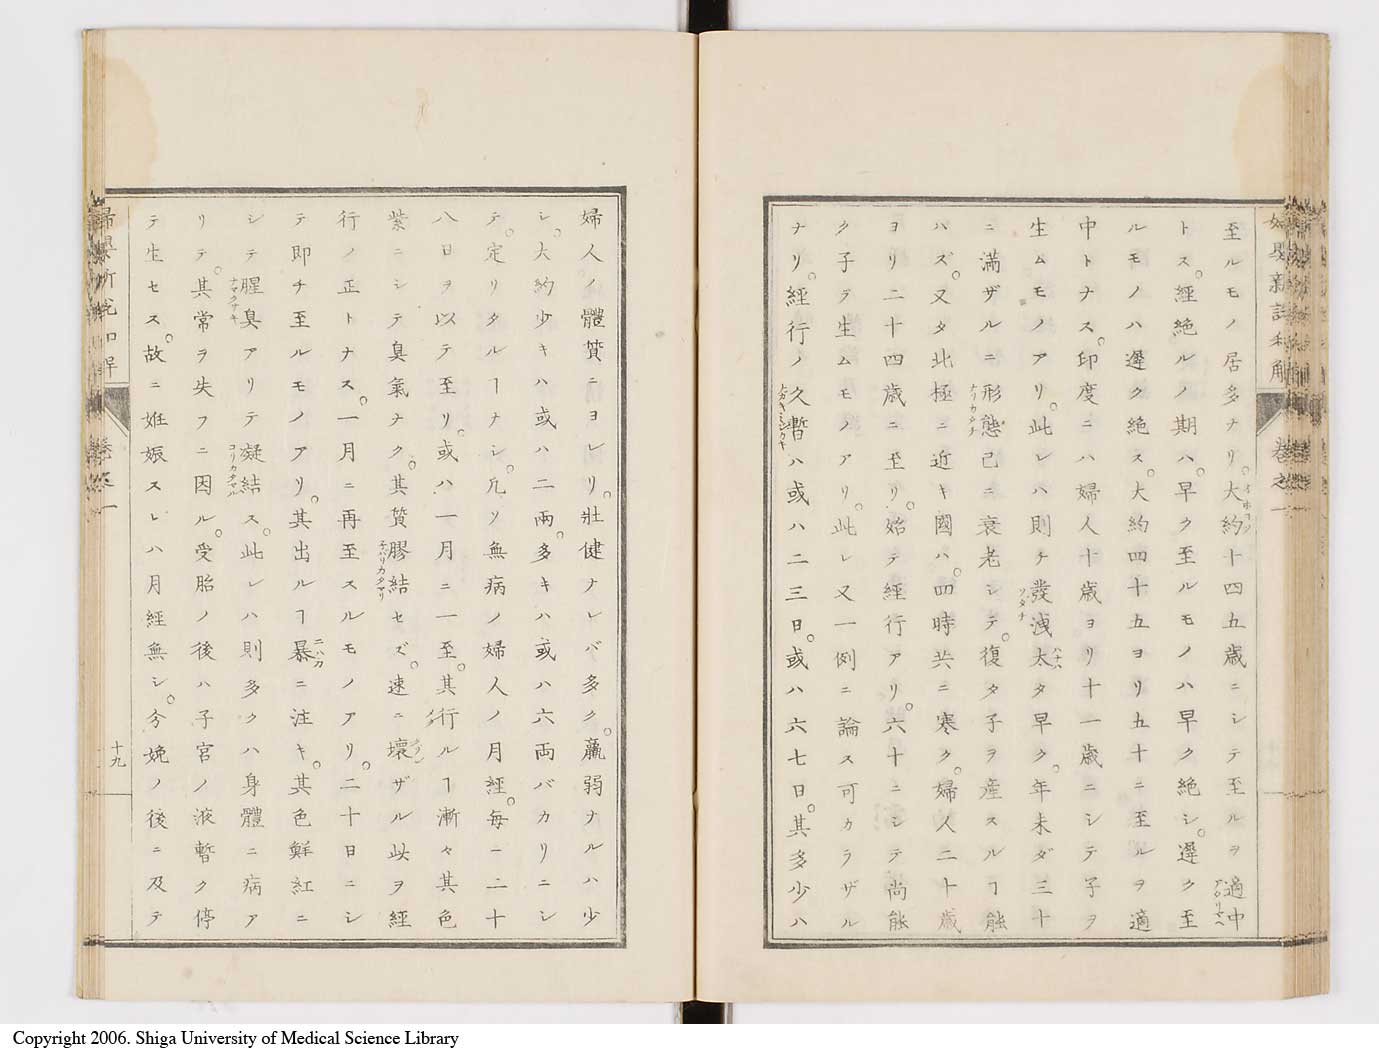 至ルモノ居多ナリ。大約十四五歳ニシテ至ルヲ適中
トス。經絶ルノ期ハ。早ク至ルモノハ早ク絶シ。遲ク至
ルモノハ遲ク絶ス。大約四十五ヨリ五十ニ至ルヲ適
中トナス。印度ニハ婦人十歳ヨリ十一歳ニシテ子ヲ
生ムモノアリ。此レハ則チ發洩太タ早ク。年未ダ三十
ニ滿ザルニ形態已ニ衰老シテ。復タ子ヲ産スルヿ能
ハズ。又タ北極ニ近キ國ハ。四時共ニ寒ク。婦人二十歳
ヨリ二十四歳ニ至リ。始テ經行アリ。六十ニシテ尚能
ク子ヲ生ムモノアリ。此レ又一例ニ論ス可カラザル
ナリ。經行ノ久暫ハ或ハ二三日。或ハ六七日。其多少ハ
婦人ノ體質ニヨレリ。壯健ナレバ多ク。羸弱ナルハ少
シ。大約少キハ或ハ二兩。多キハ或ハ六両バカリニシ
テ。定リタルヿナシ。凡ソ無病ノ婦人ノ月經。毎ニ二十
八日ヲ以テ至リ。或ハ一月ニ一至。其行ルヿ漸々其色
紫ニシテ臭氣ナク。其質膠結セズ。速ニ壞ザル此ヲ經
行ノ正トナス。一月ニ再至スルモノアリ。二十日ニシ
テ即チ至ルモノアリ。其出ルヿ暴ニ注キ。其色鮮紅ニ
シテ腥臭アリテ凝結ス。此レハ則多クハ身體ニ病ア
リテ。其常ヲ失フニ因ル。受胎ノ後ハ子宮ノ液暫ク停
テ生セス。故ニ姙娠スレハ月經無シ。今娩ノ後ニ及テ
卷之一
十九